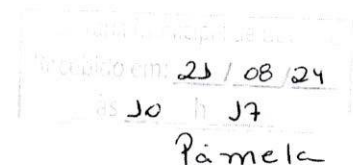 Recebido em: 21 / 08 / 24
às 10 h 17
Pâmela